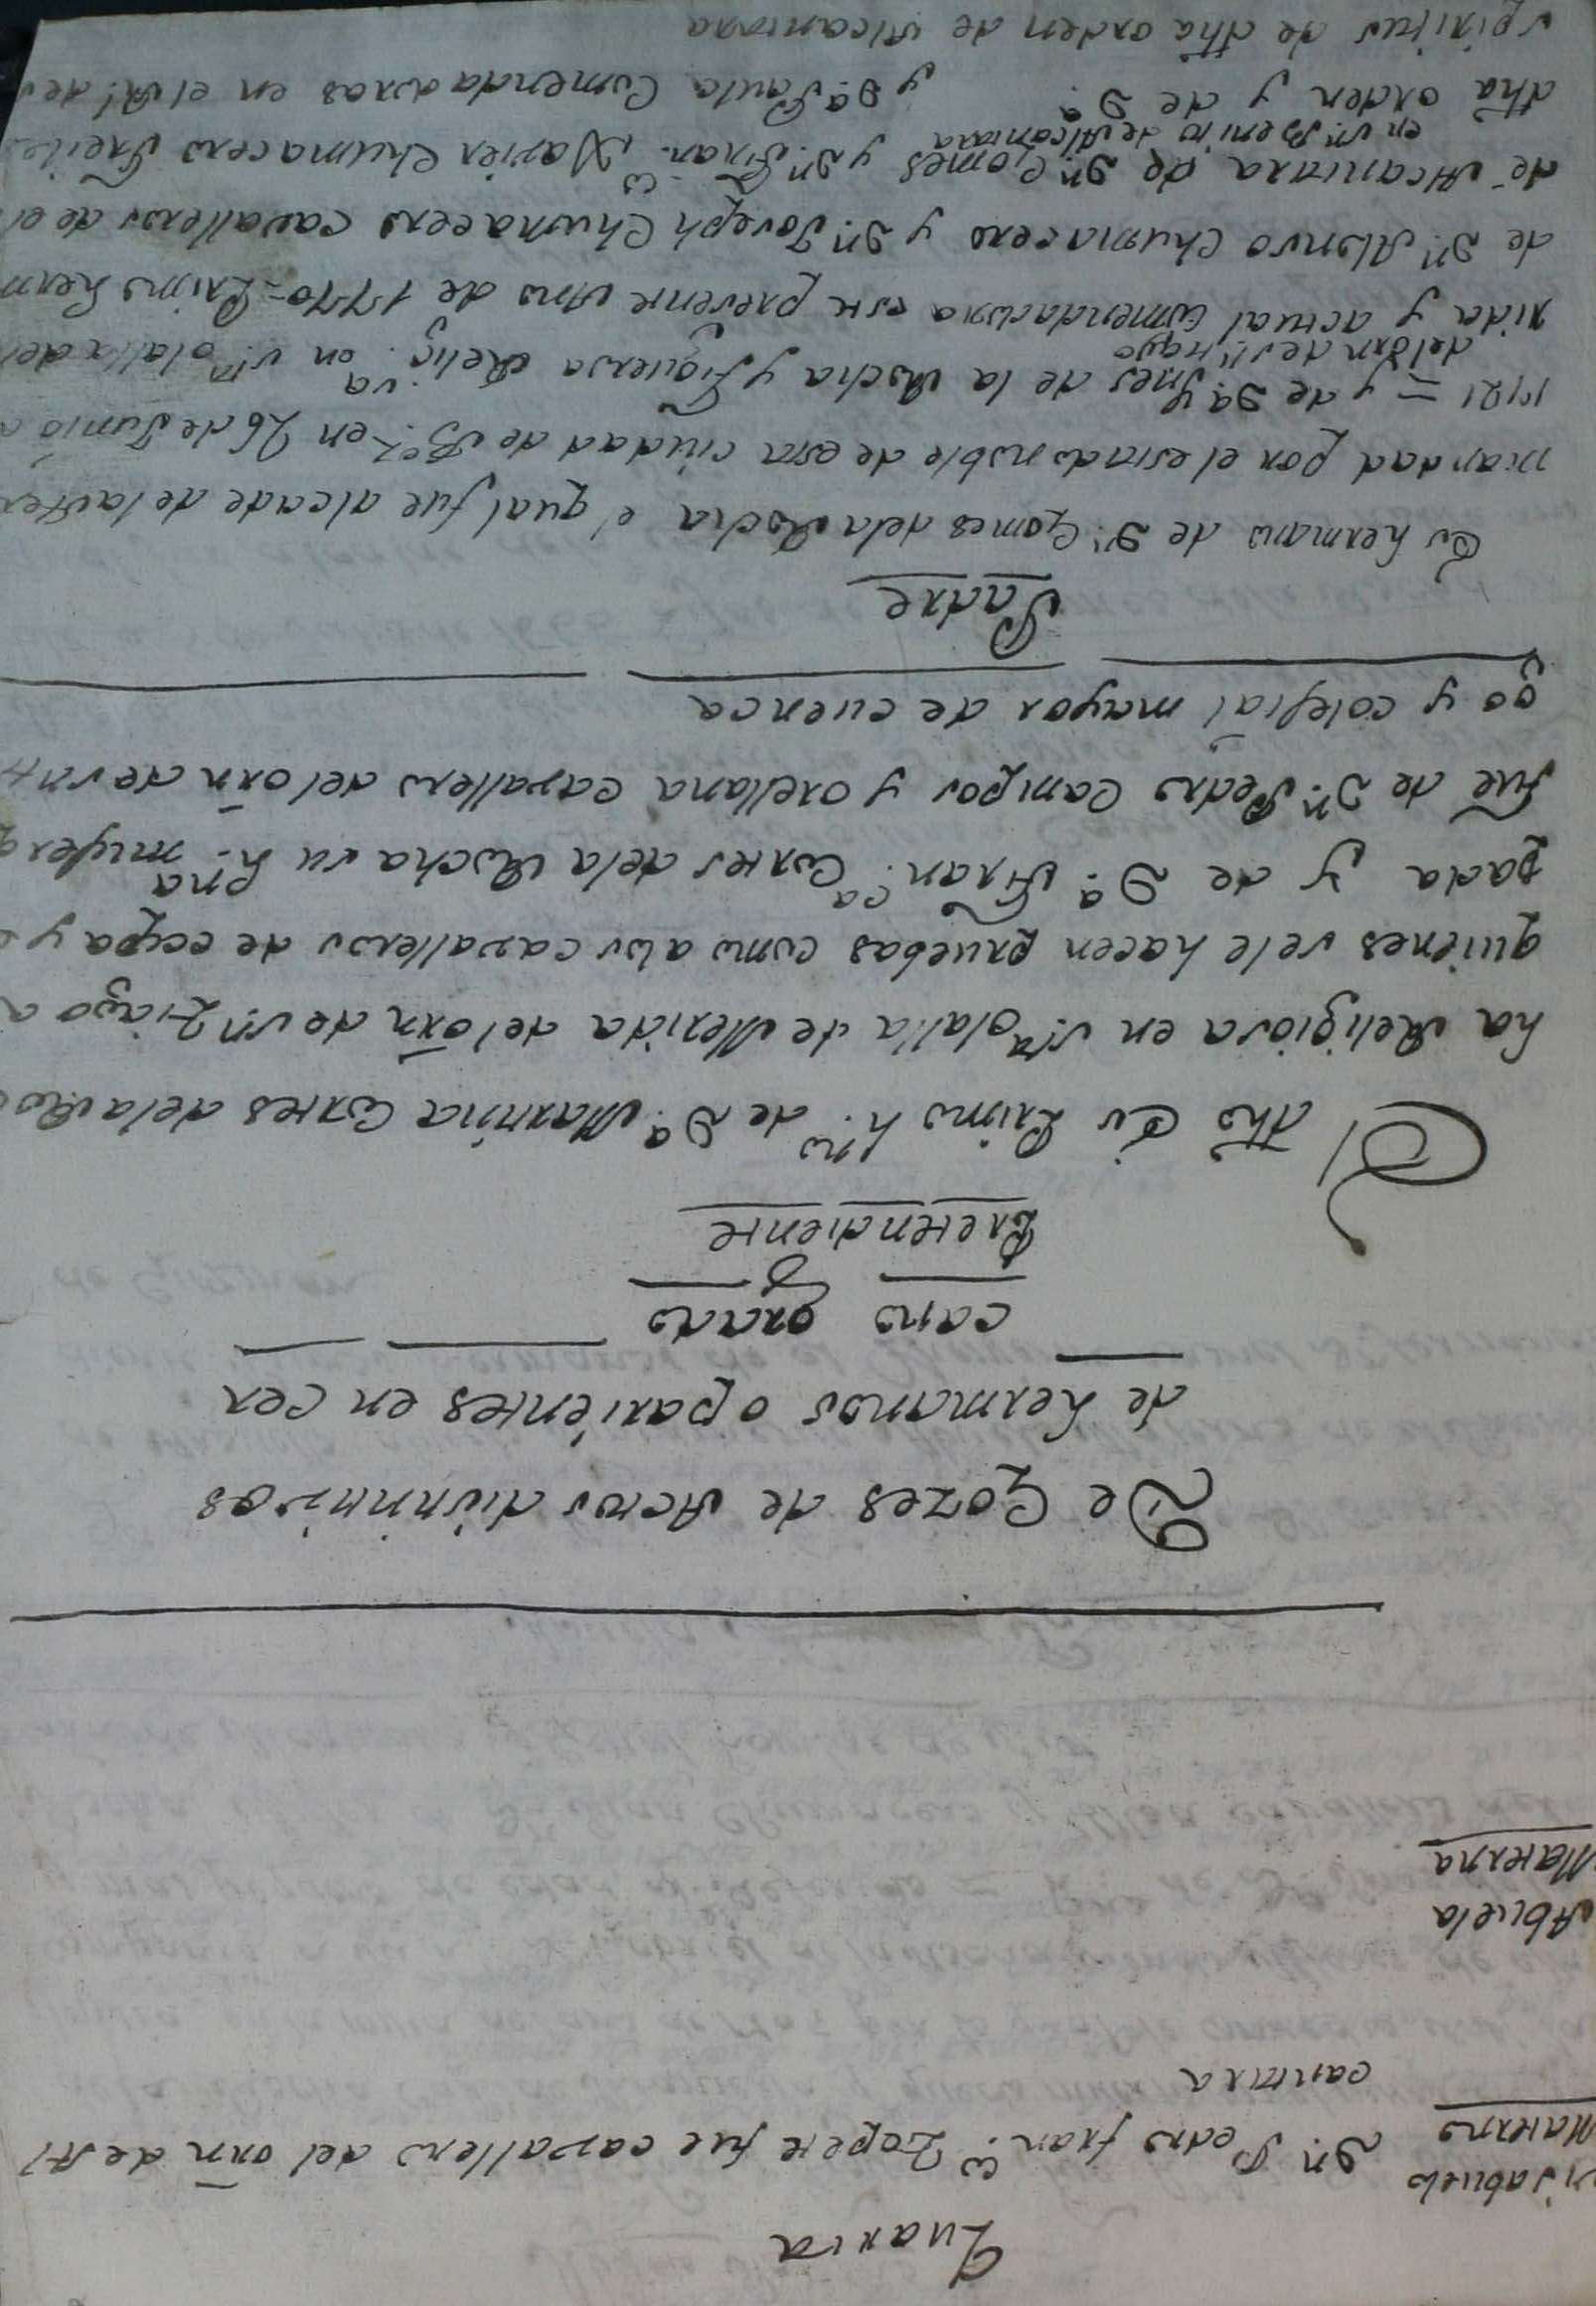 Quarta
Visabuelo
Materno
Dn. Pedro franco. Zapete fue cavallero del orn de Al
cantara
Abuela
Materna
De Gozes de Actos distintivos
de hermanos o parientes en cer
cano grado
Pretendiente
El dho Es Primo hno. de Da. Maxnina Cortes dela Ro
ha Religiosa en sta olalla de Merida del orn de sn Tiago a
quienes sele hacen pruebas como alos cavalleros de ccapa y
pada y de Da. Franca. Cortes dela Rocha su hna. muger q
fue de Dn. Pedro Campos y orellana cavallero del orn de sant
go y colegial mayor de cuenca
Padre
Es hermano de Dn. Gomes dela Rocha el qual fue alcade dela Her
mandad por el estado noble de esta ciudad de Bz. en 26 de Junio
1721 = y de Da. Ynes de la Rocha y Figueroa Religva. en sta olalla de
del orn de santiago
rida y actual comendadora este presente Ano de 1770 = Primo herm
de Dn. Alonso Chumacero y Dn. Joseph Chumacero cavalleros de el
de Alcantara de Dn Gomes y Dn. Franco. Xavier Chumacero Freiles
en sn. Benito de Alcantara
dha orden y de Da. y Da. Paula Comendadoras en el Rl. de s
spiritus de dha orden de Alcantara